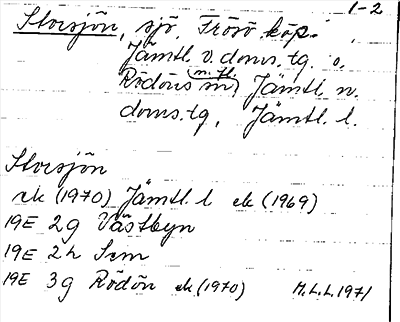 1-2
Storsjön, sjö, Frösö köp.
Jämtl. v. doms. tg. o.
Rödöns (m. fl.) Jämtl. n.
doms. tg, Jämtl. l.
Storsjön
ek (1970) Jämtl. l ek (1969)
19E 2g Västbyn
19E 2h
19E 3g Rödön ek (1970) M.L.L. 1971